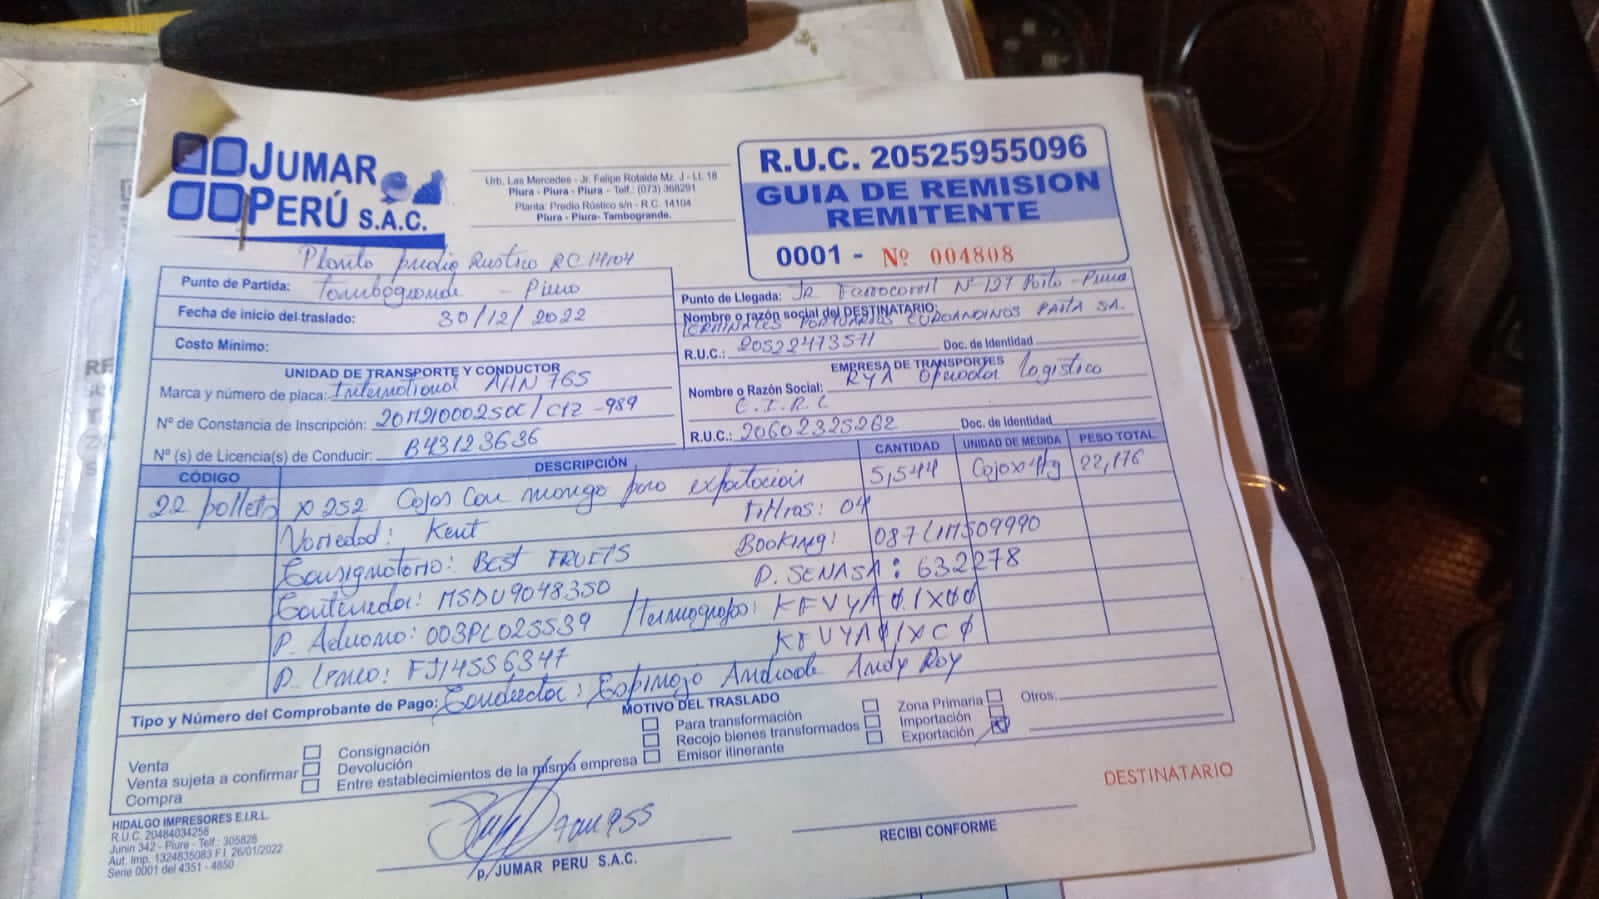 JUMAR
PERÚ S.A.C.
Urb. Las Mercedes - Jr. Felipe Rotalde Mz. J - Lt. 18
Piura - Piura - Piura - Telf.: (073) 368291
Planta: Predio Rústico s/n - R.C. 14104
Piura - Piura- Tambogrande.
R.U.C. 20525955096
GUIA DE REMISION
REMITENTE
0001 - Nº 004808
Planta predio Rustico RC 14104
Punto de Partida: Tambogrande - Piura
Fecha de inicio del traslado: 30/12/2022
Costo Mínimo:
Punto de Llegada: Jr Ferrocarril Nº 127 Paita - Piura
Nombre o razón social del DESTINATARIO:
TERMINALES PORTUARIOS EUROANDINOS PAITA SA.
R.U.C.: 20522473571 Doc. de Identidad
UNIDAD DE TRANSPORTE Y CONDUCTOR
Marca y número de placa: International AHN 765
Nº de Constancia de Inscripción: / C1Z - 989
Nº (s) de Licencia(s) de Conducir: B43123636
EMPRESA DE TRANSPORTES
Nombre o Razón Social: RYA Operador Logistico
E.I.R.L
R.U.C.: 20602325262 Doc. de Identidad
CÓDIGO DESCRIPCIÓN CANTIDAD UNIDAD DE MEDIDA PESO TOTAL
22 pallets x 252 Cajas con mango para exportacion 5,544 Caja x 4kg 22,176
Variedad: Kent Filtros: 04
Consignatario: BEST FRUITS BOOKING: 087LIM509990
Contenedor: MSDU9048350 P. SENASA: 632278
P. Aduana: 003PL025539 / Termografos: KFVYA01X00
P. Linea: FJ14556347 KFVYA01XC0
Tipo y Número del Comprobante de Pago: Conductor: Espinoza Andrade Andy Roy
MOTIVO DEL TRASLADO
Venta
Venta sujeta a confirmar
Compra
Consignación
Devolución
Entre establecimientos de la misma empresa
Para transformación
Recojo bienes transformados
Emisor itinerante
Zona Primaria
Importación
Exportación
Otros:
HIDALGO IMPRESORES E.I.R.L.
R.U.C. 20484034258
Junin 342 - Piura - Telf.: 305828
Aut. Imp. 1324835083 F.I 26/01/2022
Serie 0001 del 4351 - 4850
p/ JUMAR PERU S.A.C.
RECIBI CONFORME
DESTINATARIO